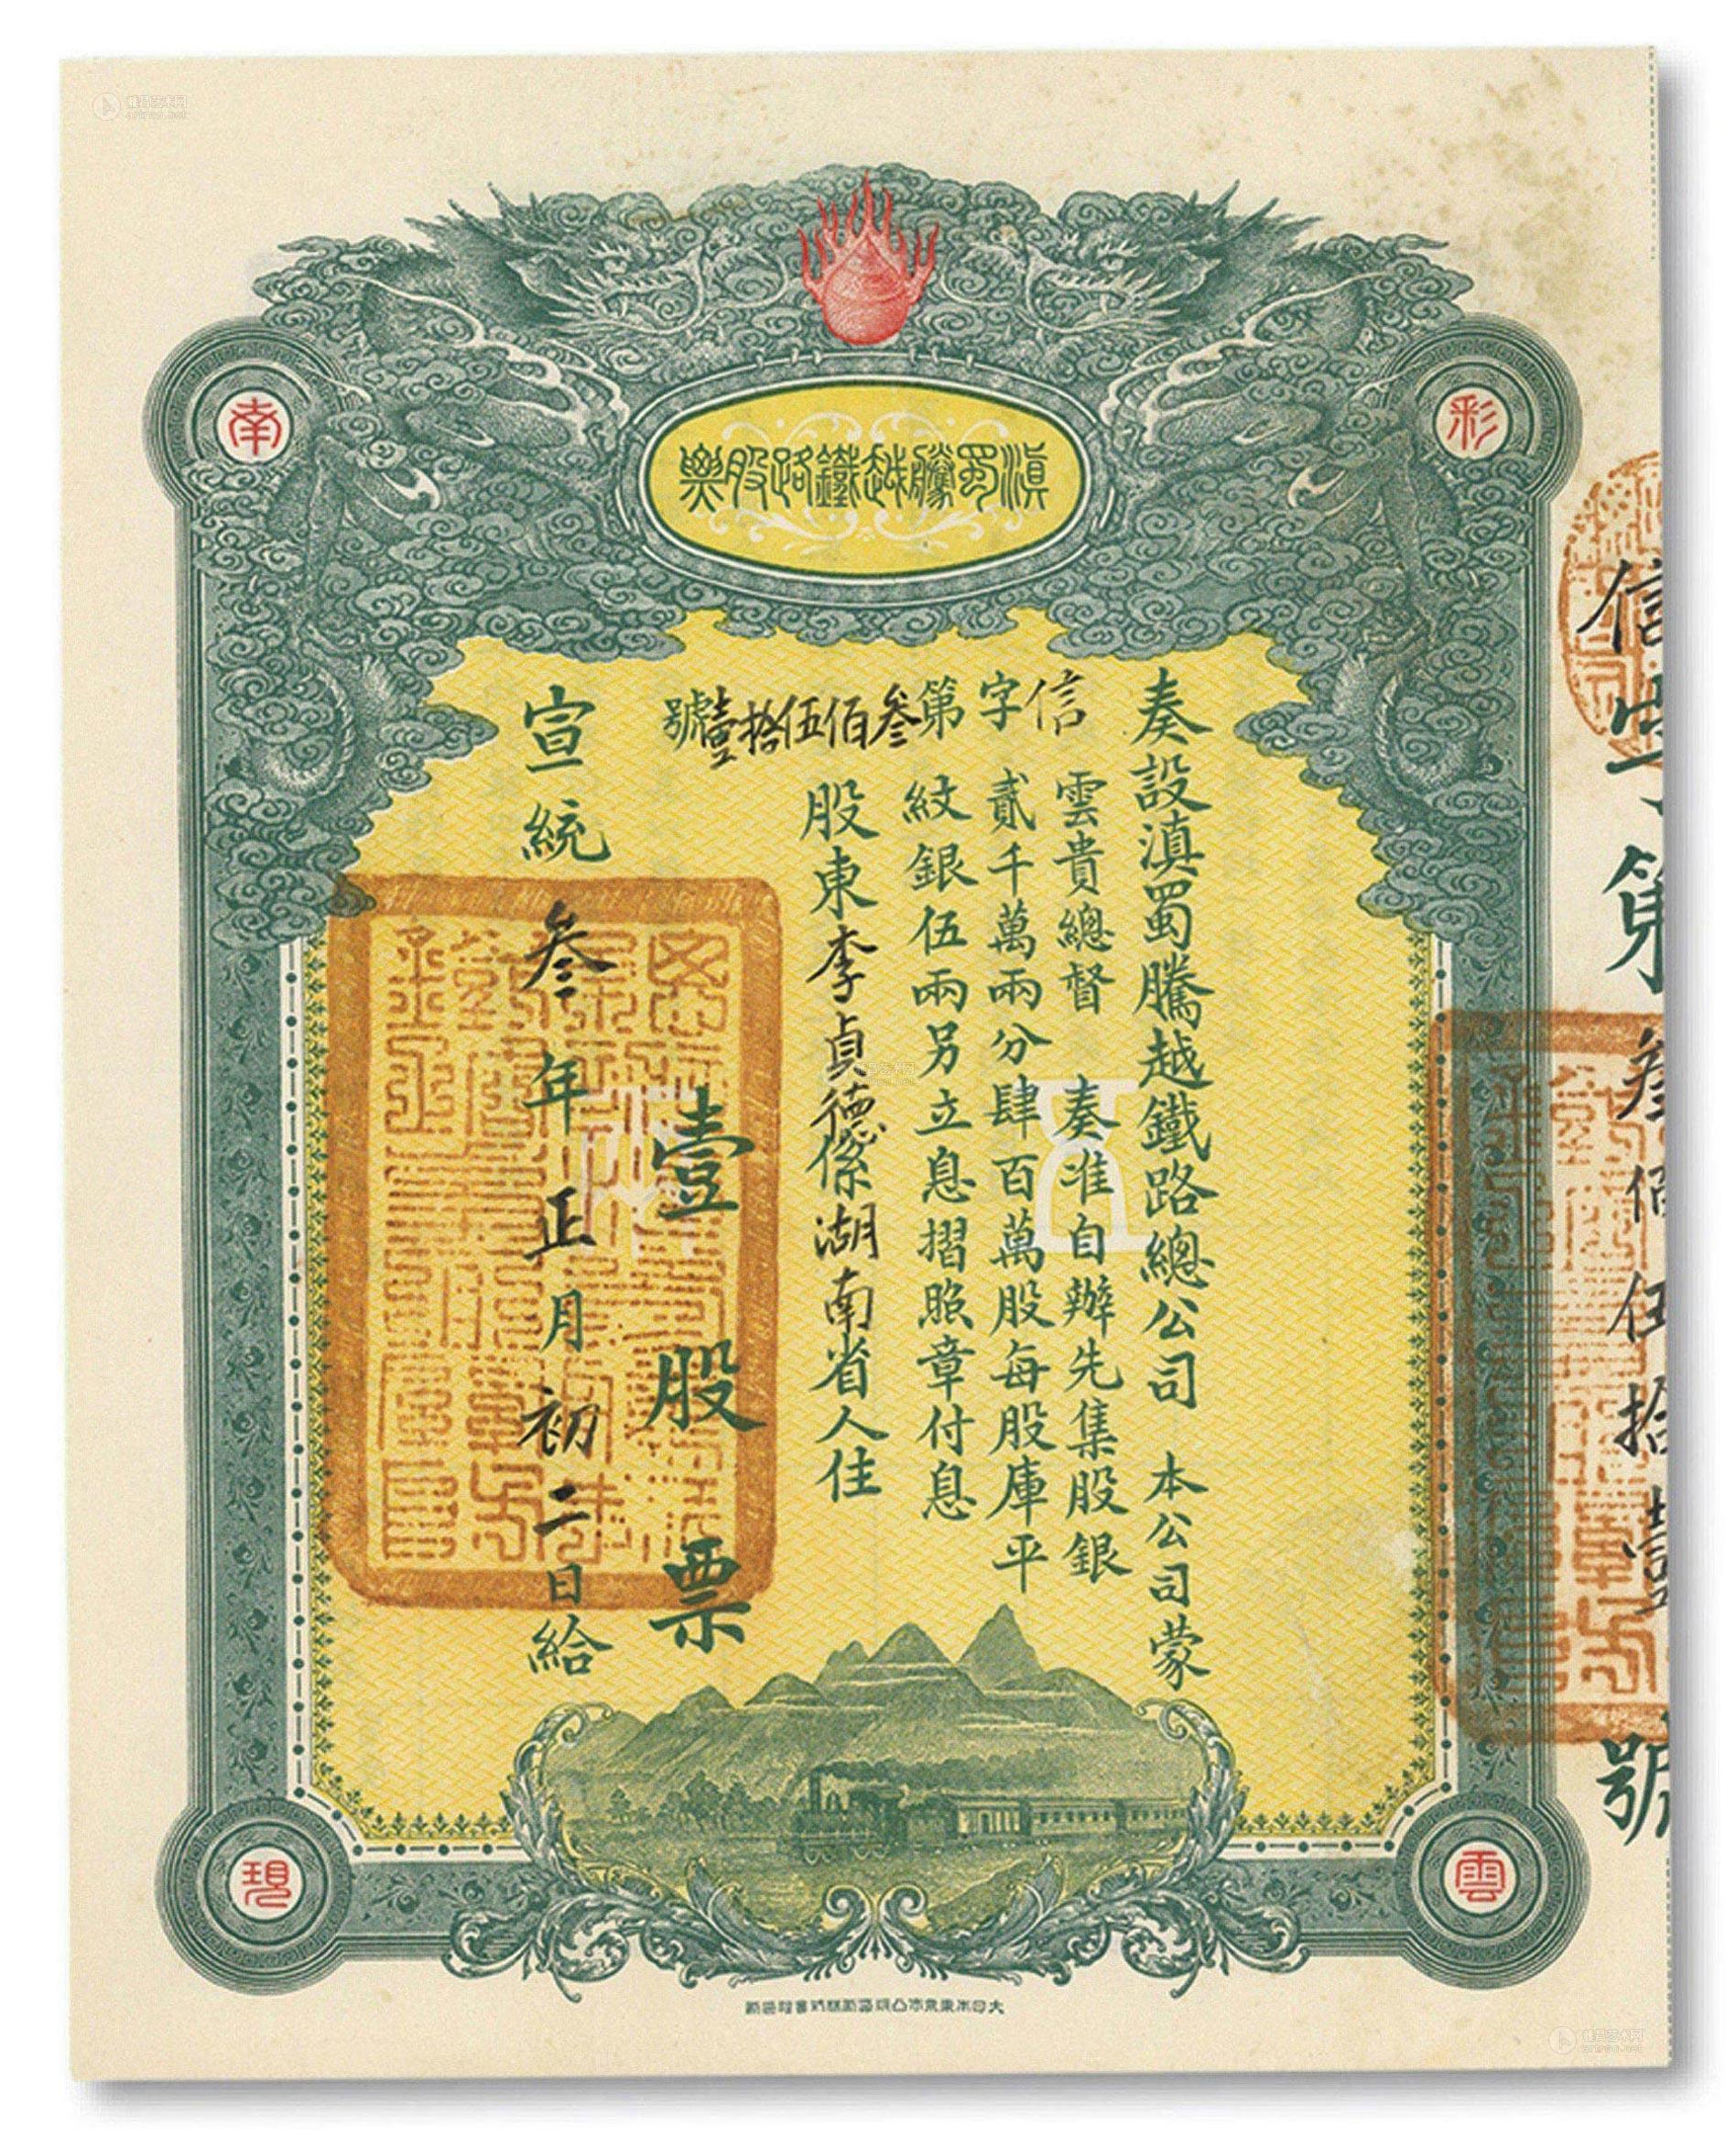 滇蜀騰越鐵路股票
彩
雲
南
現
信字第叁佰伍拾壹號
奏設滇蜀騰越鐵路總公司 本公司蒙
雲貴總督 奏准自辦先集股銀
貳千萬兩分肆百萬股每股庫平
紋銀伍兩另立息摺照章付息
股東李貞德係湖南省人住
壹股票
宣統叁年正月初二日給
信字第叁佰伍拾壹號